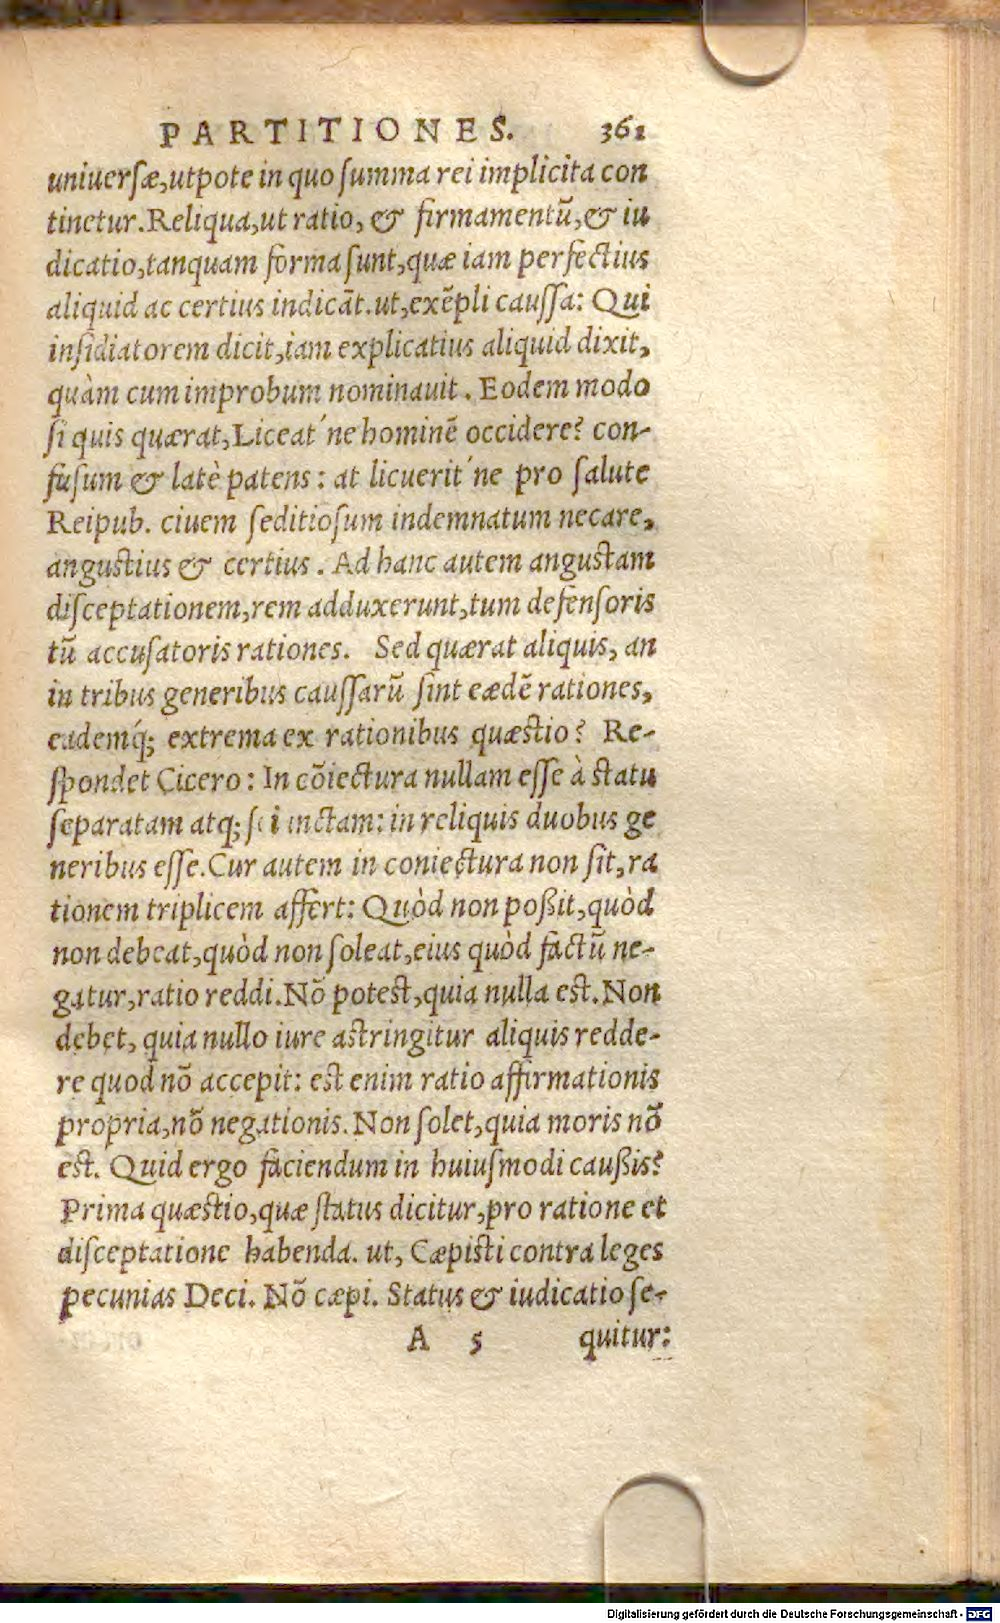 PARTITIONES. 361
uniuersæ,utpote in quo summa rei implicita con
tinetur.Reliqua,ut ratio, & firmamentũ,& iu
dicatio,tanquam forma sunt,quæ iam perfectius
aliquid ac certius indicãt.ut,exẽpli caussa: Qui
insidiatorem dicit,iam explicatius aliquid dixit,
quàm cum improbum nominauit. Eodem modo
si quis quærat,Liceat´ne hominẽ occidere? con-
fusum & latè patens: at licuerit´ne pro salute
Reipub. ciuem seditiosum indemnatum necare,
angustius & certius. Ad hanc autem angustam
disceptationem,rem adduxerunt,tum defensoris
tũ accusatoris rationes. Sed quærat aliquis, an
in tribus generibus caussarũ sint eædẽ rationes,
eademq́; extrema ex rationibus quæstio? Re-
spondet Cicero: In cõiectura nullam esse à statu
separatam atq; : in reliquis duobus ge
neribus esse.Cur autem in coniectura non sit,ra
tionem triplicem affert: Quòd non poßit,quòd
non debeat,quòd non soleat,eius quòd factũ ne-
gatur,ratio reddi.Nõ potest,quia nulla est.Non
debet, quia nullo iure astringitur aliquis redde-
re quod nõ accepit: est enim ratio affirmationis
propria,nõ negationis.Non solet,quia moris nõ
est. Quid ergo faciendum in huiusmodi caußis?
Prima quæstio,quæ status dicitur,pro ratione et
disceptatione habenda. ut, Cæpisti contra leges
pecunias Deci. Nõ cæpi. Status & iudicatio se-
A 5 quitur:
Digitalisierung gefördert durch die Deutsche Forschungsgemeinschaft - DFG